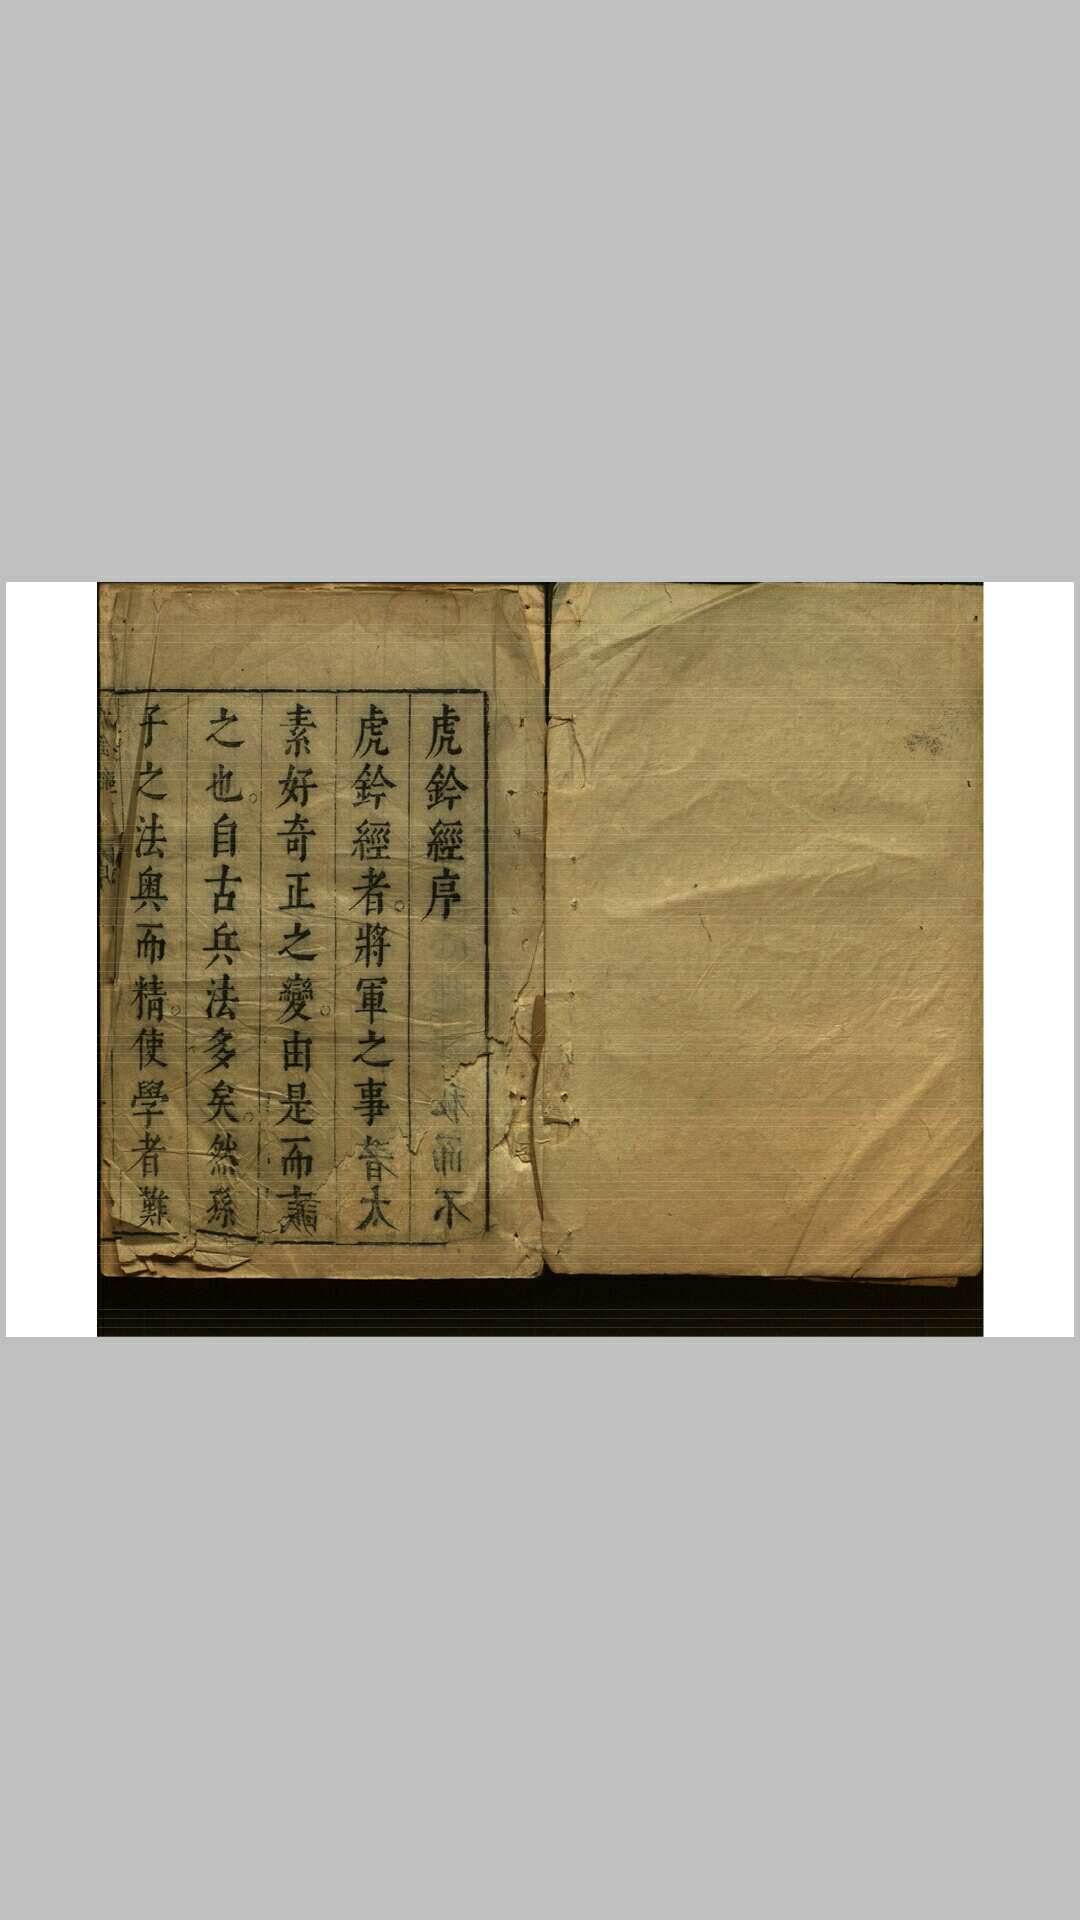 虎鈐經序
虎鈐經者。將軍之事
素好奇正之變。由是而
之也。自古兵法多矣。然孫
子之法奥而精。使學者難